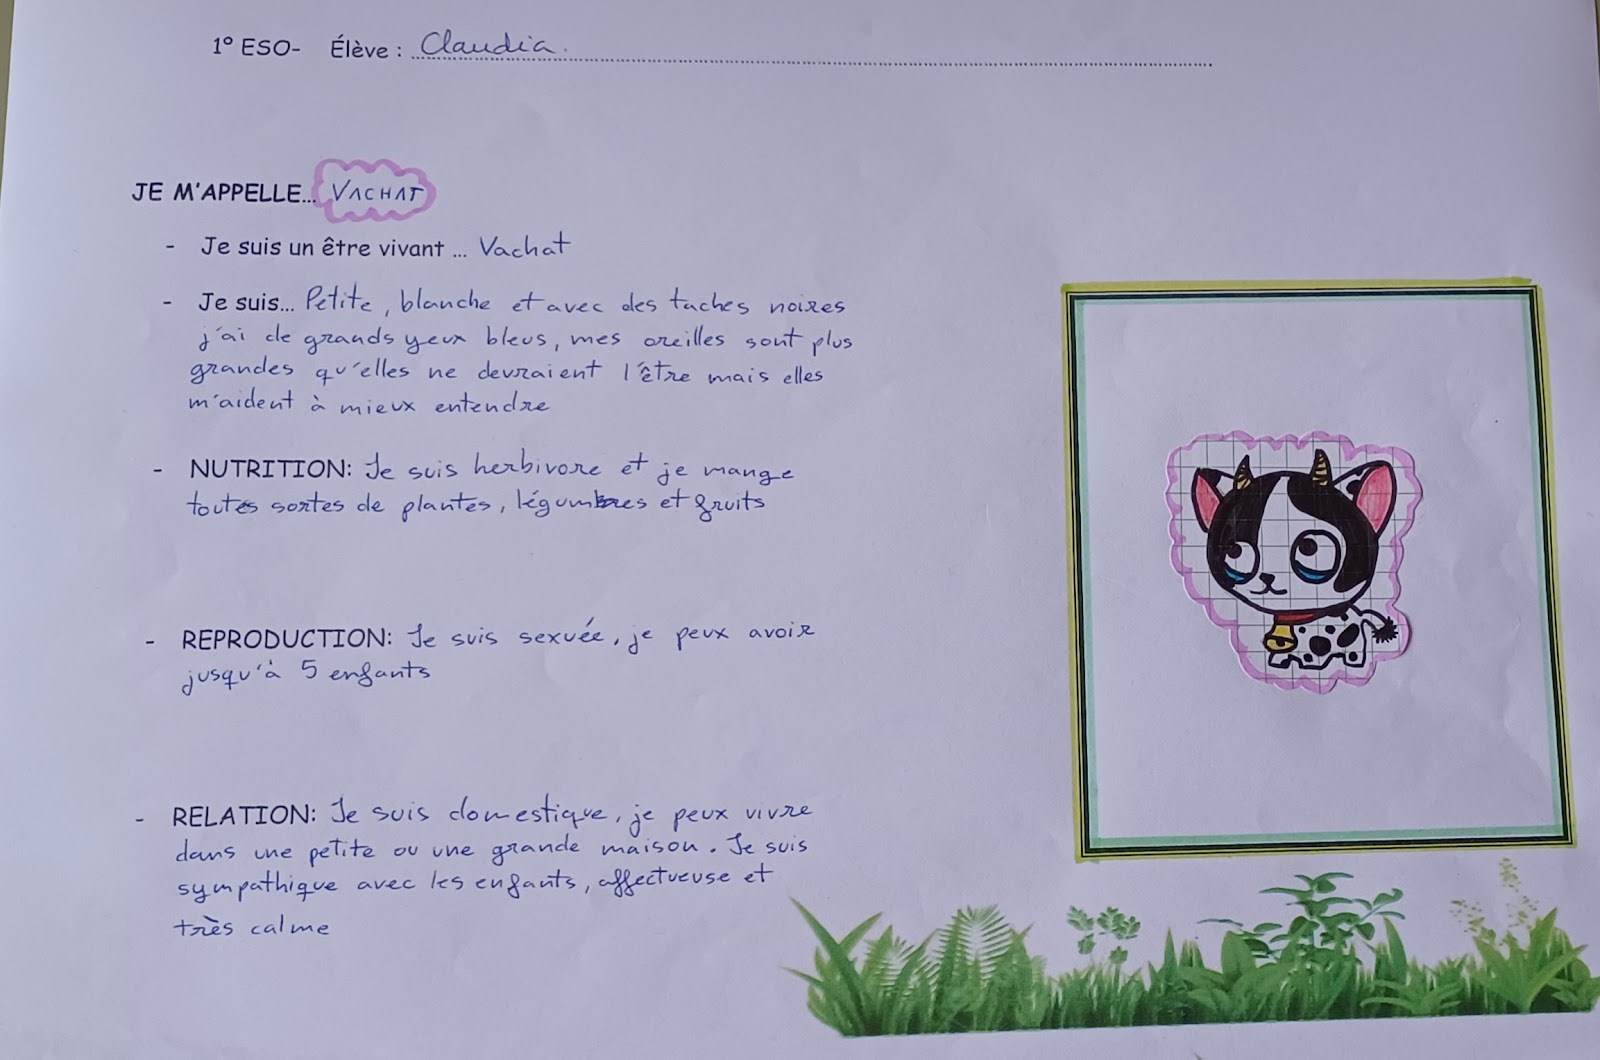 1º ESO- Élève : Claudia.
JE M'APPELLE... VACHAT
- Je suis un être vivant ... Vachat
- Je suis... Petite, blanche et avec des taches noires
j'ai de grands yeux bleus, mes oreilles sont plus
grandes qu'elles ne devraient l'être mais elles
m'aident à mieux entendre
- NUTRITION: Je suis herbivore et je mange
toutes sortes de plantes, légumbres et fruits
- REPRODUCTION: Je suis sexuée, je peux avoir
jusqu'à 5 enfants
- RELATION: Je suis domestique, je peux vivre
dans une petite ou une grande maison. Je suis
sympathique avec les enfants, affectueuse et
très calme